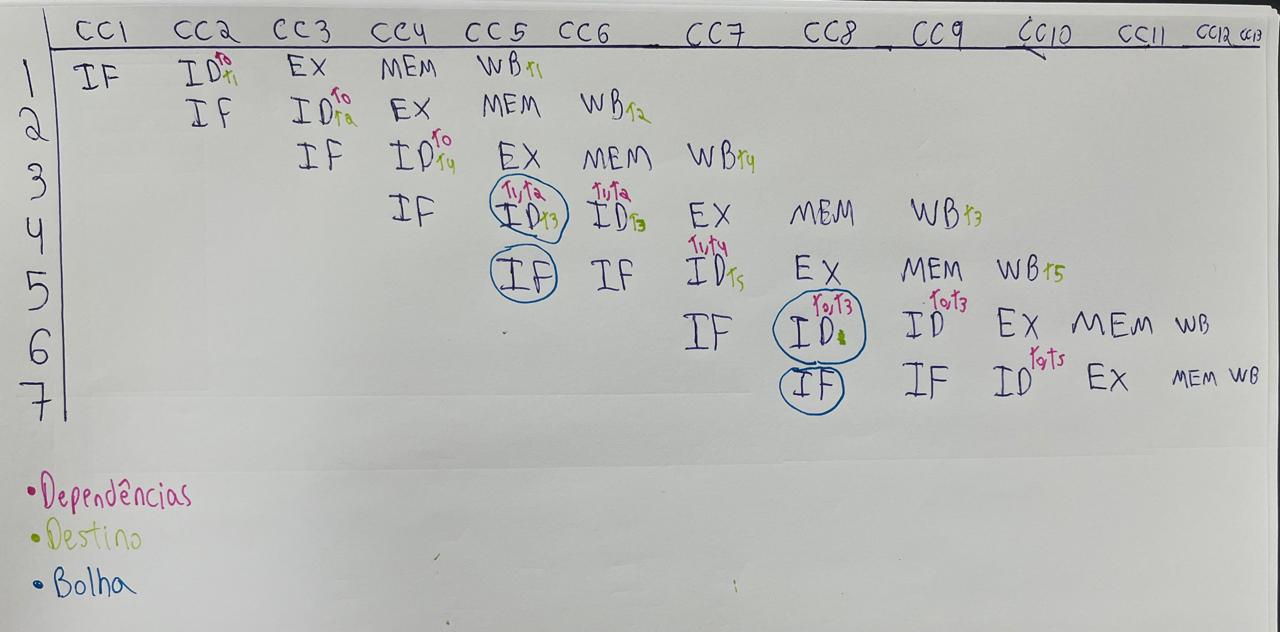 CC1 CC2 CC3 CC4 CC5 CC6 CC7 CC8 CC9 CC10 CC11 CC12 CC13
1 IF ID r0 r1 EX MEM WB r1
2 IF ID r0 r2 EX MEM WB r2
3 IF ID r0 r4 EX MEM WB r4
4 IF ID r1,r2 r3 ID r1,r2 r3 EX MEM WB r3
5 IF IF ID r1,r4 r5 EX MEM WB r5
6 IF ID r0,r3 ID r0,r3 EX MEM WB
7 IF IF ID r0,r5 EX MEM WB
• Dependências
• Destino
• Bolha